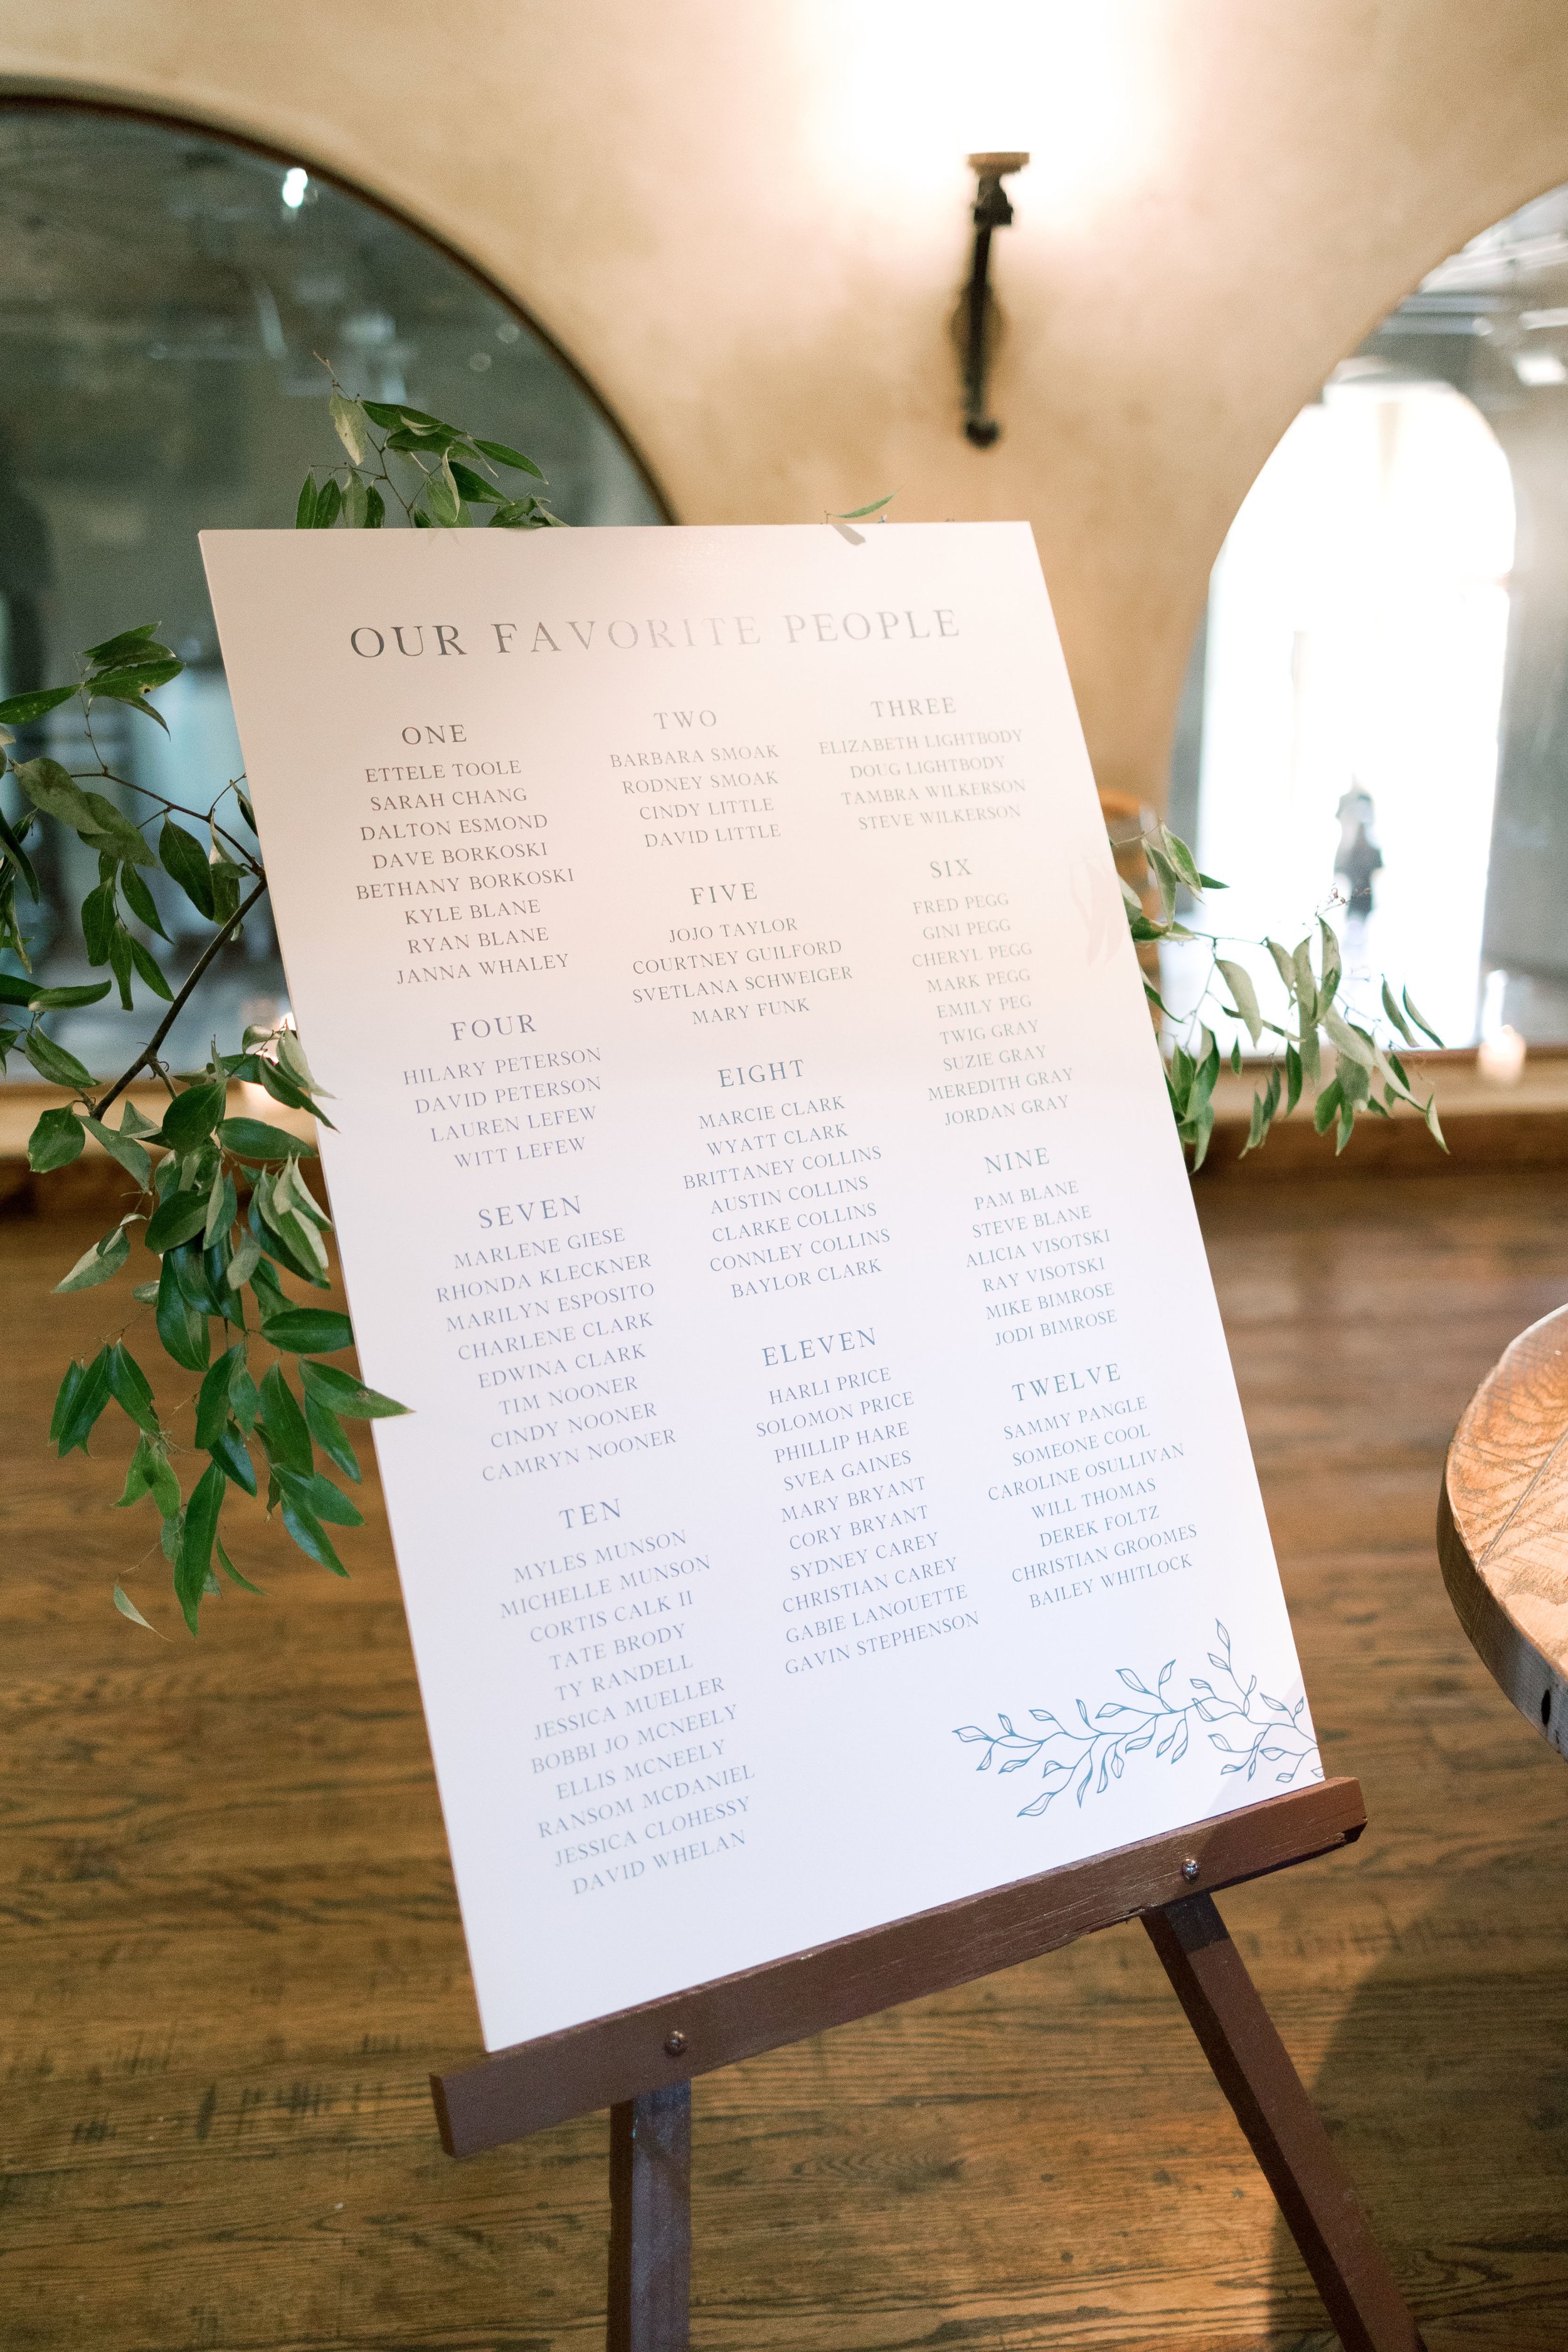 OUR FAVORITE PEOPLE
ONE
ETTELE TOOLE
SARAH CHANG
DALTON ESMOND
DAVE BORKOSKI
BETHANY BORKOSKI
KYLE BLANE
RYAN BLANE
JANNA WHALEY
TWO
BARBARA SMOAK
RODNEY SMOAK
CINDY LITTLE
DAVID LITTLE
THREE
ELIZABETH LIGHTBODY
DOUG LIGHTBODY
TAMBRA WILKERSON
STEVE WILKERSON
FOUR
HILARY PETERSON
DAVID PETERSON
LAUREN LEFEW
WITT LEFEW
FIVE
JOJO TAYLOR
COURTNEY GUILFORD
SVETLANA SCHWEIGER
MARY FUNK
SIX
FRED PEGG
GINI PEGG
CHERYL PEGG
MARK PEGG
EMILY PEG
TWIG GRAY
SUZIE GRAY
MEREDITH GRAY
JORDAN GRAY
SEVEN
MARLENE GIESE
RHONDA KLECKNER
MARILYN ESPOSITO
CHARLENE CLARK
EDWINA CLARK
TIM NOONER
CINDY NOONER
CAMRYN NOONER
EIGHT
MARCIE CLARK
WYATT CLARK
BRITTANEY COLLINS
AUSTIN COLLINS
CLARKE COLLINS
CONNLEY COLLINS
BAYLOR CLARK
NINE
PAM BLANE
STEVE BLANE
ALICIA VISOTSKI
RAY VISOTSKI
MIKE BIMROSE
JODI BIMROSE
TEN
MYLES MUNSON
MICHELLE MUNSON
CORTIS CALK II
TATE BRODY
TY RANDELL
JESSICA MUELLER
BOBBI JO MCNEELY
ELLIS MCNEELY
RANSOM MCDANIEL
JESSICA CLOHESSY
DAVID WHELAN
ELEVEN
HARLI PRICE
SOLOMON PRICE
PHILLIP HARE
SVEA GAINES
MARY BRYANT
CORY BRYANT
SYDNEY CAREY
CHRISTIAN CAREY
GABIE LANOUETTE
GAVIN STEPHENSON
TWELVE
SAMMY PANGLE
SOMEONE COOL
CAROLINE OSULLIVAN
WILL THOMAS
DEREK FOLTZ
CHRISTIAN GROOMES
BAILEY WHITLOCK